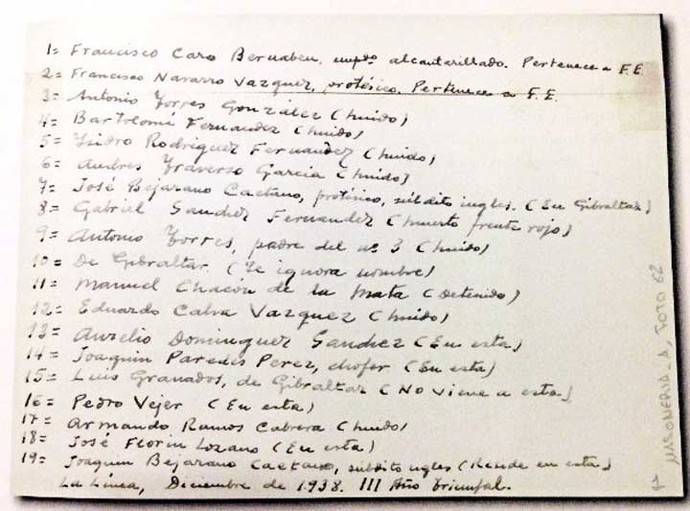 1= Francisco Caro Bernabeu, empdo alcantarillado. Pertenece a F.E.
2= Francisco Navarro Vazquez, protésico. Pertenece a F.E.
3= Antonio Torres González (huido)
4= Bartolomé Fernandez (huido)
5= Ysidro Rodriguez Fernandez (huido)
6= Andres Traverso Garcia (huido)
7= José Bejarano Caetano, protésico, súbdito ingles. (En Gibraltar)
8= Gabriel Sanchez Fernandez (muerto frente rojo)
9= Antonio Torres, padre del nº 3 (huido)
10= De Gibraltar. (Se ignora nombre)
11= Manuel Chacón de la Mata (detenido)
12= Eduardo Calva Vazquez (huido)
13= Aurelio Dominguez Sanchez (En esta)
14= Joaquin Paredes Perez, chofer (En esta)
15= Luis Granados, de Gibraltar (No viene a esta)
16= Pedro Vejer (En esta)
17= Armando Ramos Cabrera (huido)
18= José Florin Lozano (En esta)
19= Joaquin Bejarano Caetano, súbdito ingles (Reside en esta)
La Linea, Diciembre de 1938. III Año Triunfal.
1 MASONERIA_A, FOTO 62